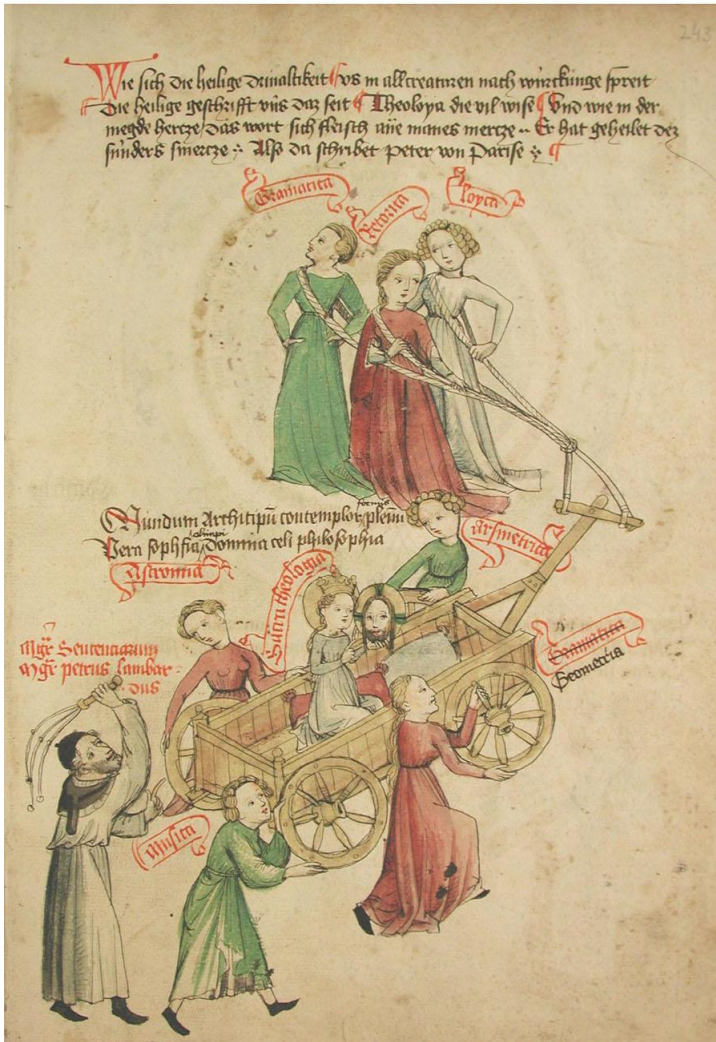 243
Wie sich die heilige drivaltikeit vs in all creaturen nach würckunge spreit
Die heilige geschrifft vns daz seit Theoloya die vil wise Vnd wie in der
megde hercze das wort sich fleisch mānes mercze Er hat geheilet dez
sunders smercze Alß da schribet peter von Parise
Gramatica
Retorica
loyca
formis
Mundum Architipū contemplor plenū
olimpi
Vera sophia domina celi philosophia
Arsmetrica
Astromia
Sacra theologia
Gramatica
Geometria
Mgr Sentenciarum
Mgr petrus lambar
dus
Musica